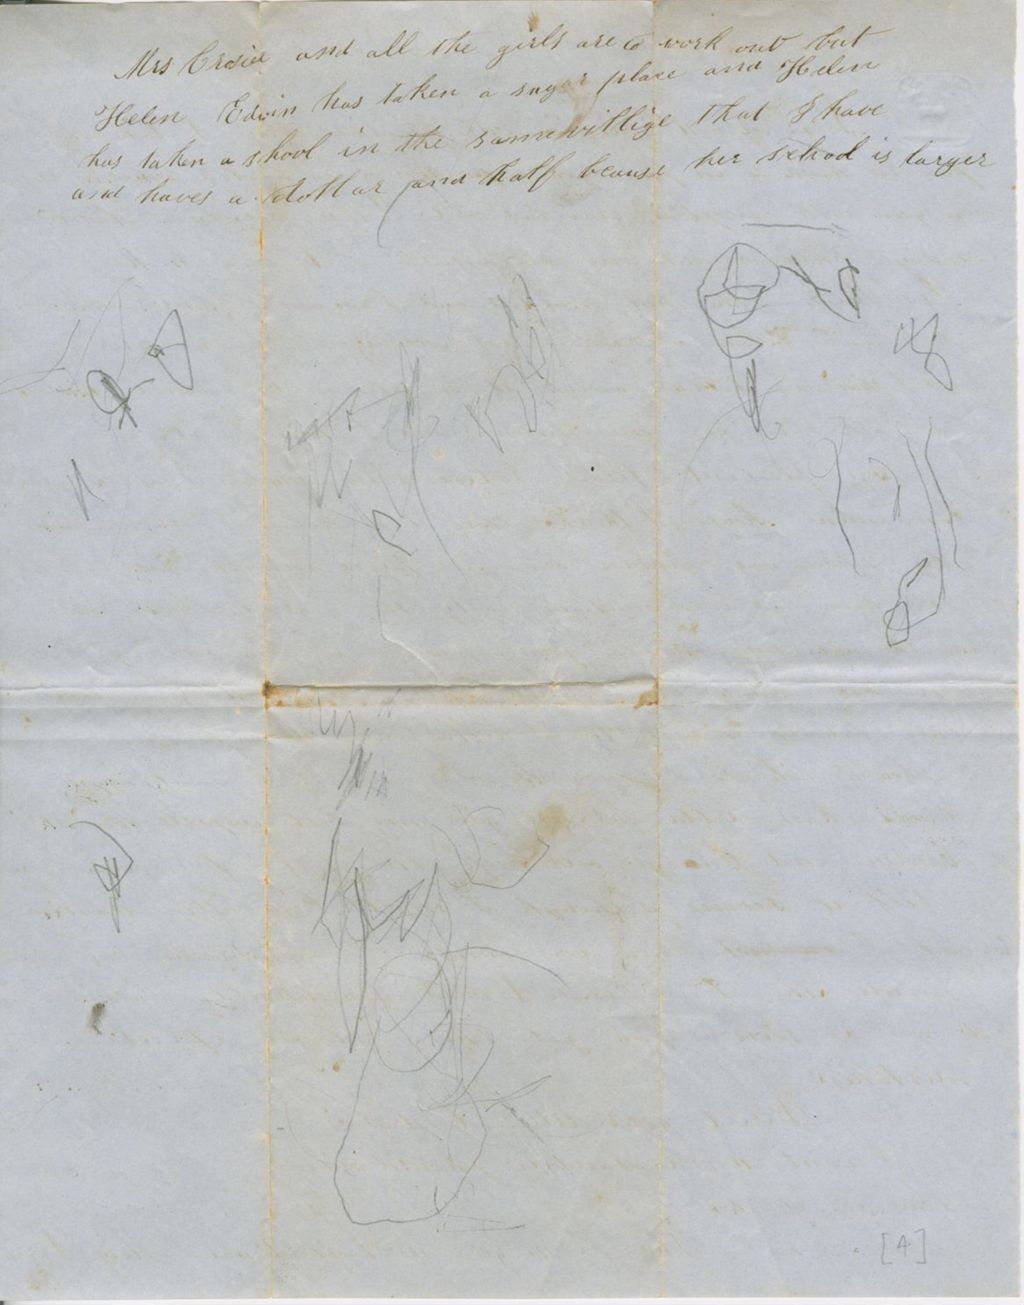 Mrs Crosier and all the girls are to work out but
Helen Edwin has taken a sugar place and Helen
has taken a shool in the same villige that I have
and haves a dollar and half beause her sehool is larger
[4]